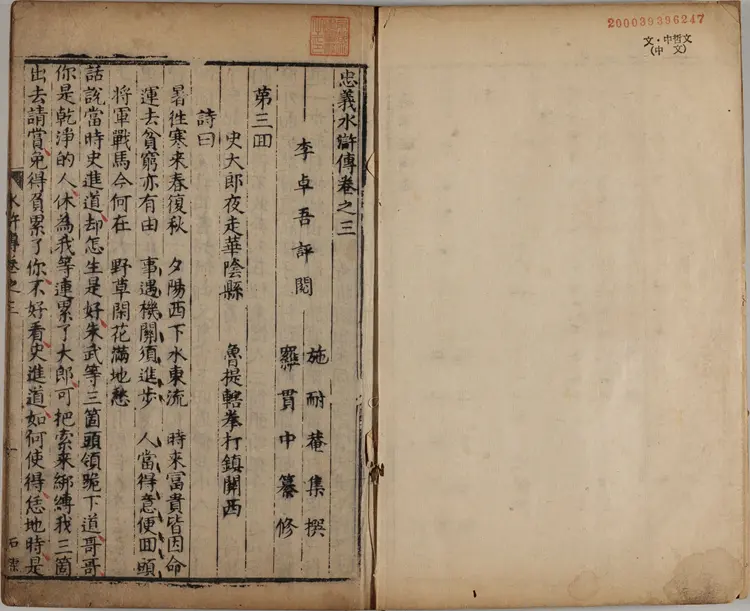 200039396247
文・中哲文
(中 文)
忠義水滸傳卷之三
李卓吾評閱
施耐菴集撰
羅貫中纂修
第三囬
史大郎夜走華陰縣　魯提轄拳打鎮關西
詩曰
暑徃寒來春復秋　夕陽西下水東流　時來冨貴皆因命
運去貧窮亦有由　事遇機關須進步　人當得意便囬頭
將軍戰馬今何在　野草閑花滿地愁
話說當時史進道却怎生是好朱武等三箇頭領跪下道哥哥
你是乾淨的人休為我等連累了大郎可把索來綁縛我三箇
出去請賞免得負累了你不好看史進道如何使得恁地時是
水滸傳卷之三